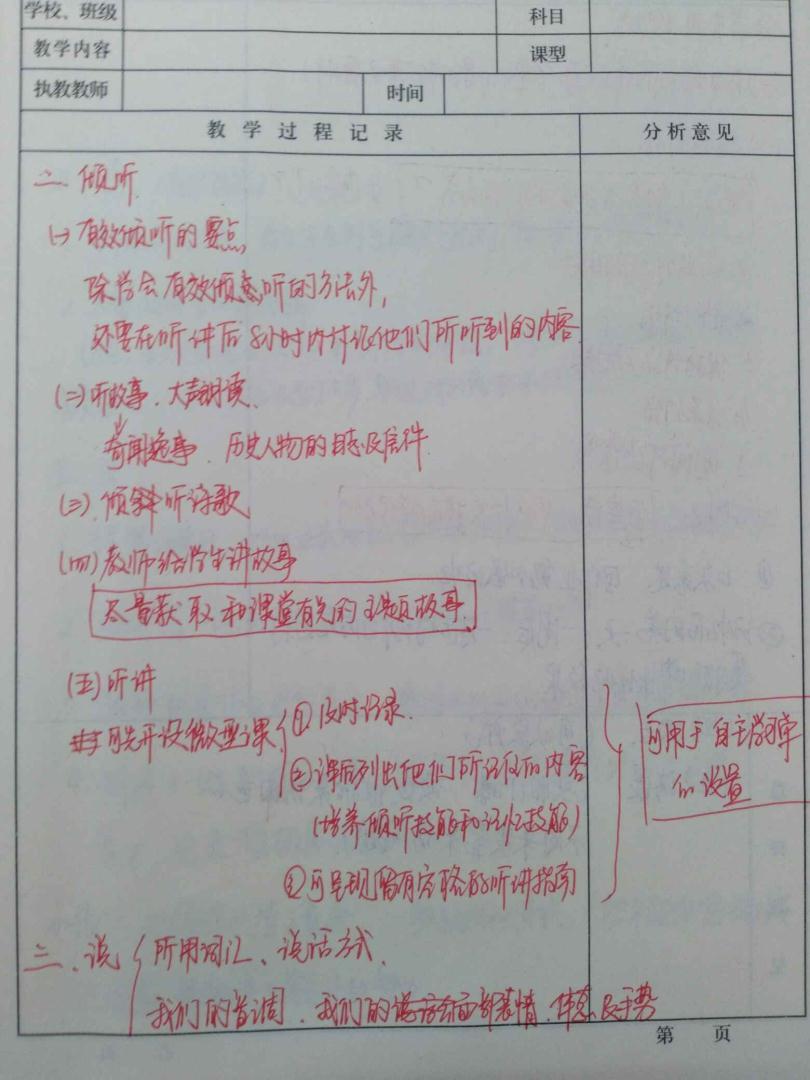 学校、班级 科目
教学内容 课型
执教教师 时间
教学过程记录 分析意见
二、倾听
(一)有效倾听的要点
除学会有效倾听的方法外,
还要在听讲后8小时内讨论他们所听到的内容
(二)听故事、大声朗读、
奇闻逸事、历史人物的日志及信件
(三)倾听诗歌
(四)教师给学生讲故事
尽量获取和课堂有关的主题故事
(五)听讲
可先开设微型课
①及时记录.
②课后列出他们所记住的内容
(培养倾听技能和记忆技能)
③可呈现留有空格的听讲指南
可用于自主学习单
的设置
三、说
所用词汇、说话方式、
我们的音调、我们的面部表情、体态及手势
第 页